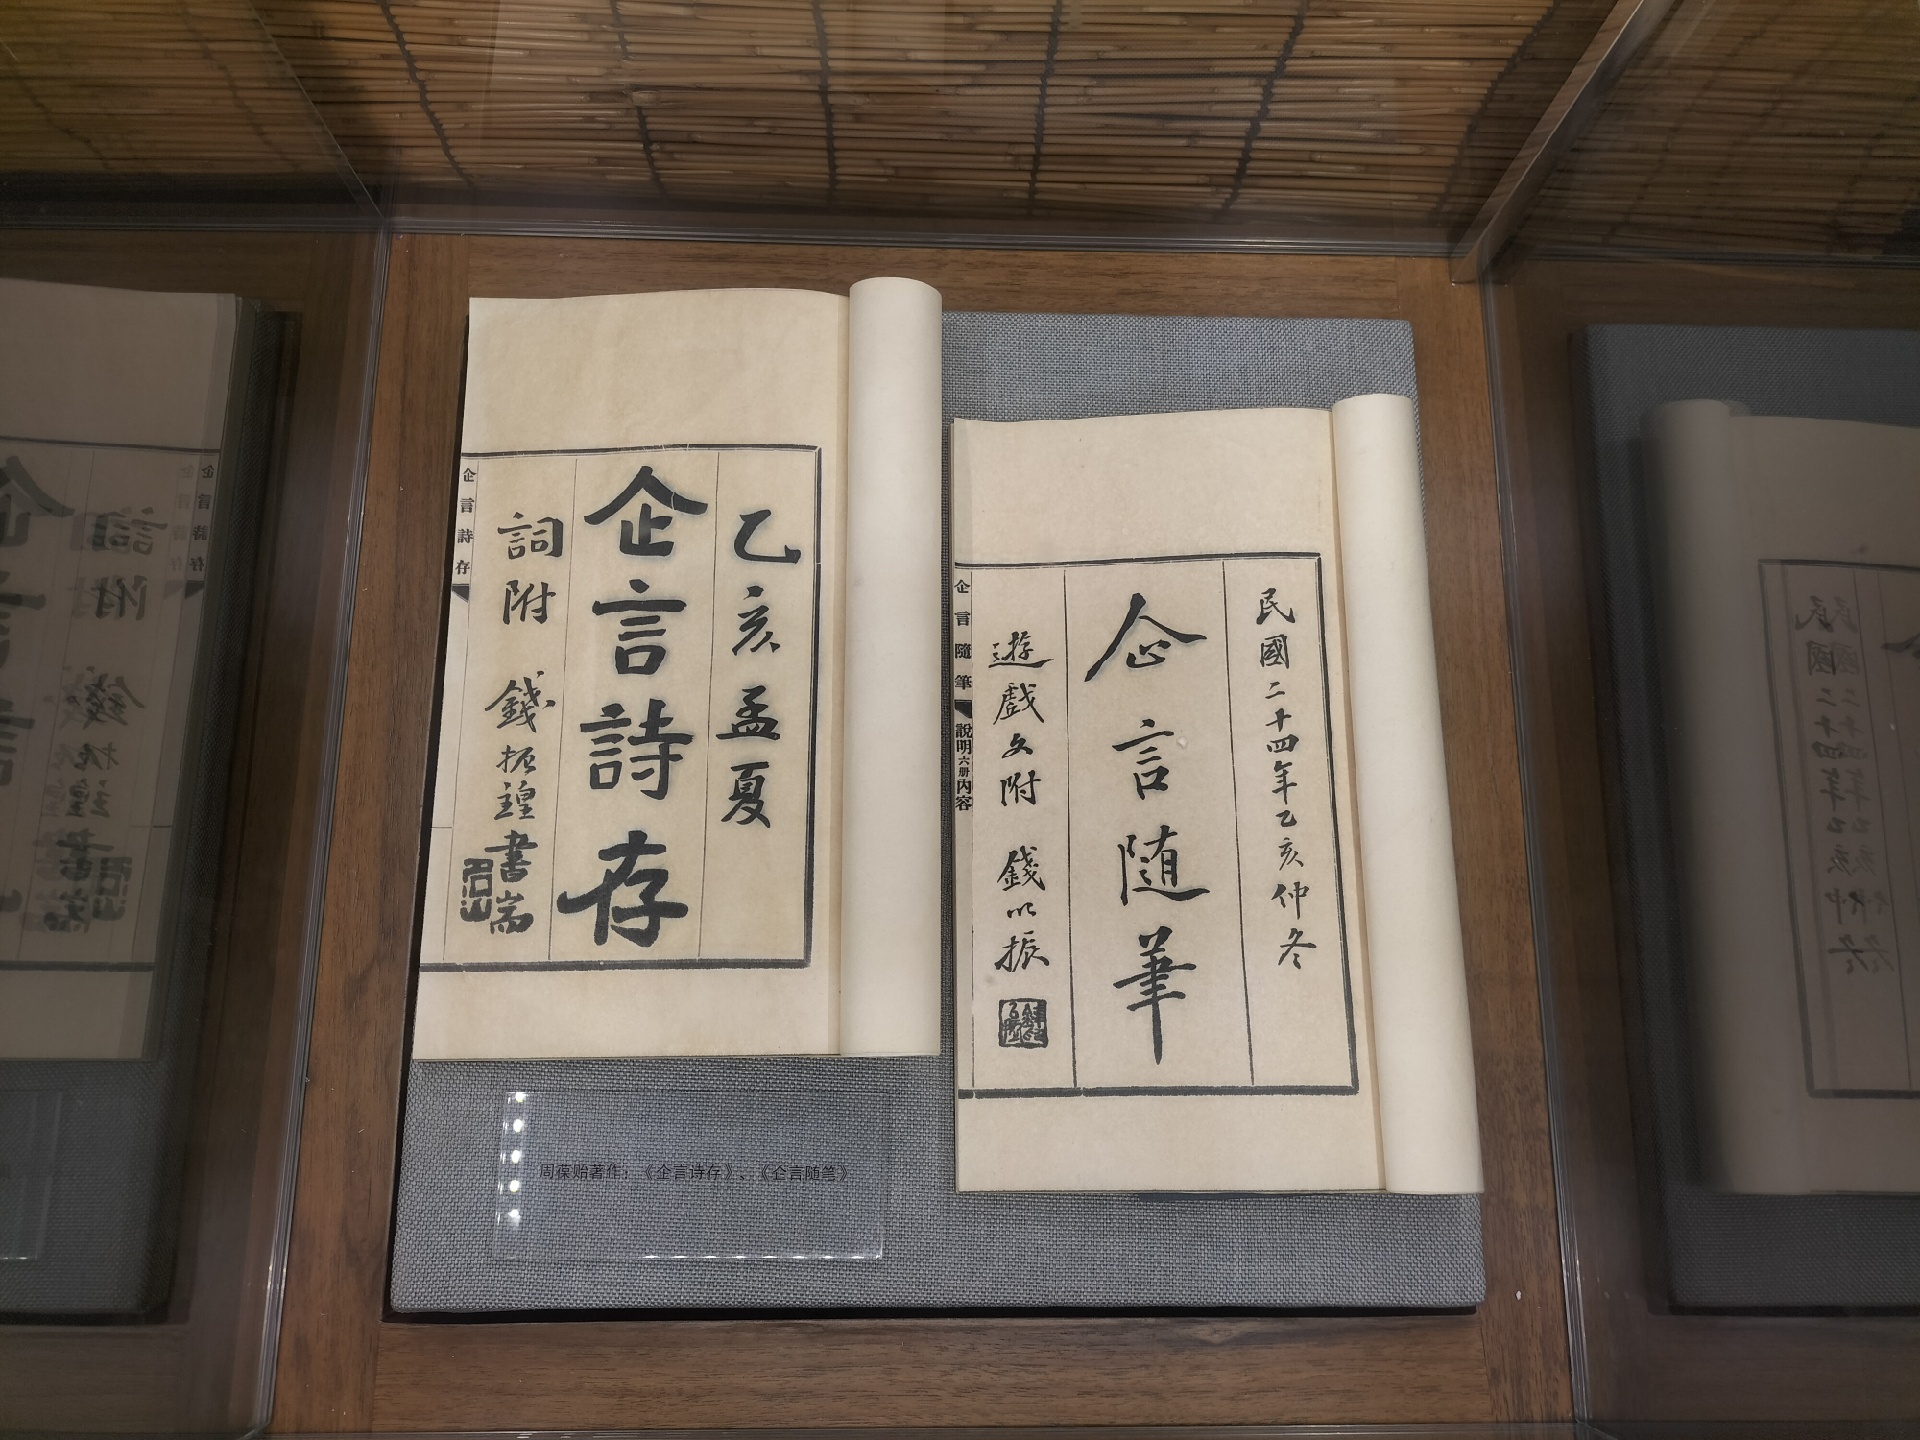 乙亥孟夏
企言詩存
詞附 錢振鍠書耑
企言詩存
民國二十四年乙亥仲冬
企言隨筆
遊戲文附 錢以振
企言隨筆 說明六册內容
周葆贻著作：《企言诗存》、《企言随笔》